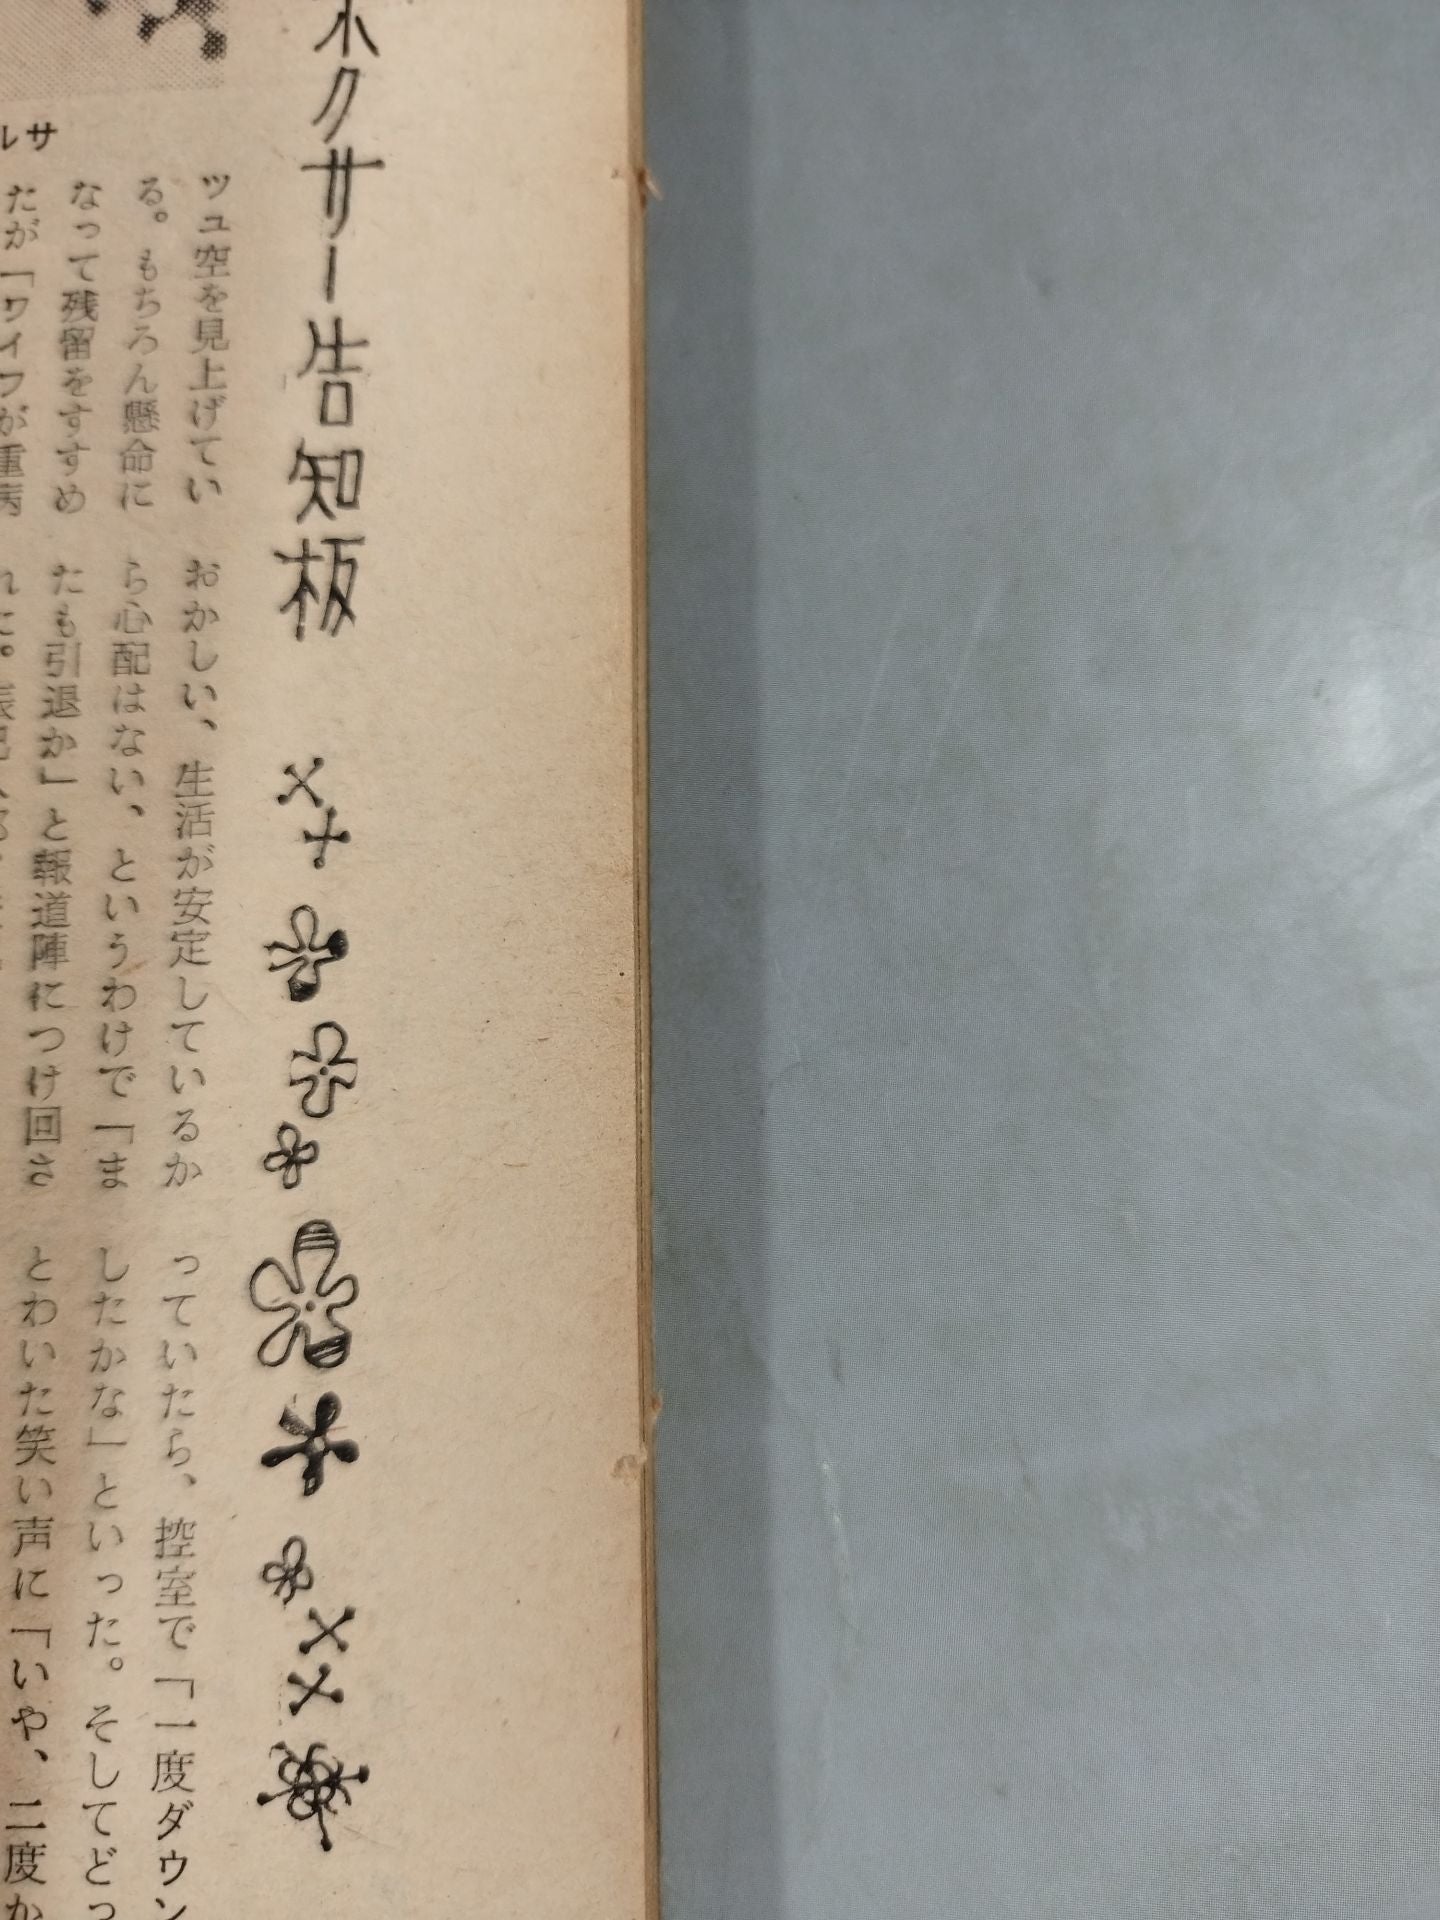 ボクサー告知板
ツュ空を見上げてい
る。もちろん懸命に
なって残留をすすめ
たが「ワイフが重病
おかしい、生活が安定しているか
ら心配はない、というわけで「ま
たも引退か」と報道陣につけ回さ
れた。
っていたら、控室で「一度ダウン
したかな」といった。そしてどっ
とわいた笑い声に「いや、二度か
ルサ